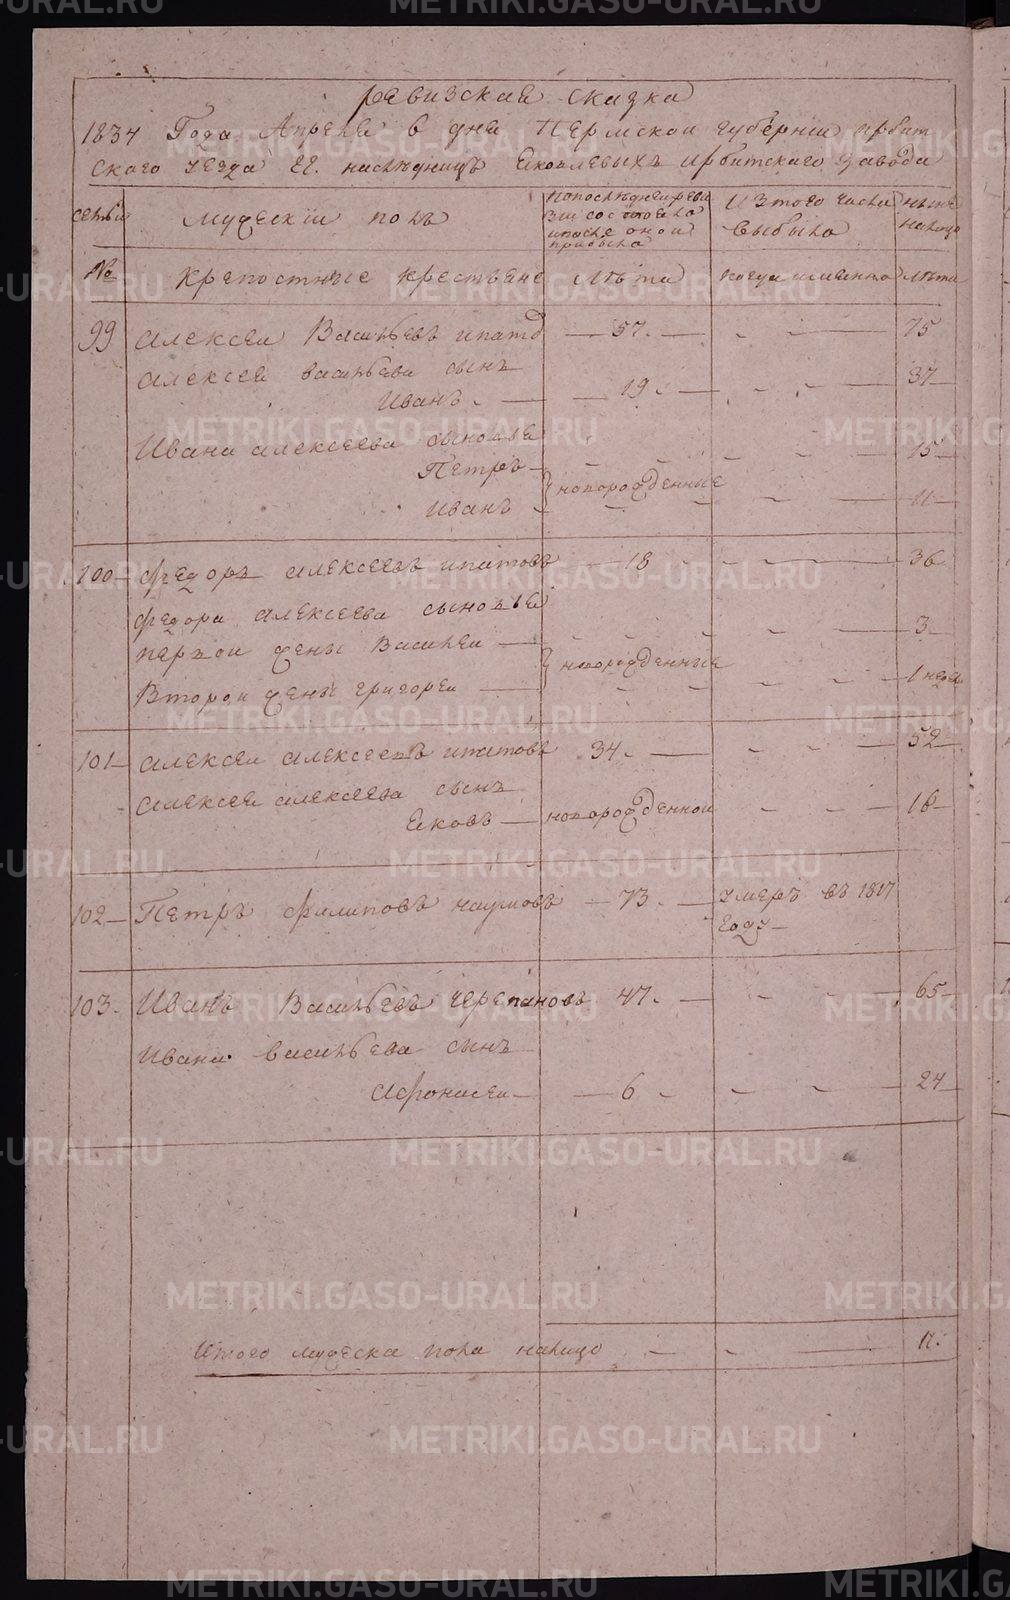 ревизская сказка
1834 Года Апреля 6 дня Пермской губернии ирбит
ского уезда гг. наслѣдницъ Яковлевыхъ ирбитскаго завода
семьи
мужескій полъ
По последней реви
зіи состояло
и после оной
прибыло
Изтого числа
выбыло
нынѣ
налицо
№
крепостные крестьяне
лѣта
когда именно
лѣта
99 Алексеи Васильевъ ипато 57. 75
Алексея васильева сынъ
Иванъ 19 37
Ивана алексеева сыновья
Петръ 15
новорожденные
Иванъ 11
100 федоръ алексеевъ ипатовъ 18 36
федора алексеева сыновья
первой жены Василеи 3
новорожденные
Второй жены григореи 1 неде
101 алексеи алексеевъ ипатовъ 34. 52
Алексея алексеева сынъ
Яковъ новорожденной 18
102 Петръ филиповъ наумовъ 73. умеръ въ 1817
году
103. Иванъ Васильевъ черепановъ 47. 65
Ивана васильева сынъ
Афонасеи 6 24
Итого мужеска пола налицо 11.
METRIKI.GASO-URAL.RU